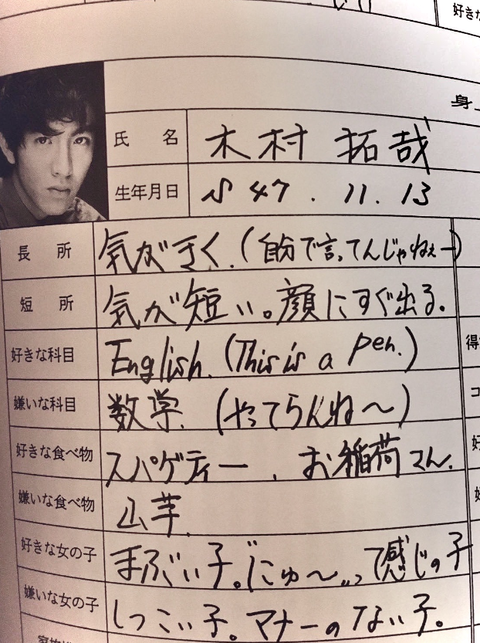 好き
身上
氏 名 木村 拓哉
生年月日 S 47 . 11 . 13
長 所 気がきく。(自分で言ってんじゃねぇー)
短 所 気が短い。顔にすぐ出る。
好きな科目 English. (This is a pen.)
得
嫌いな科目 数学. (やってらんね〜)
コ
好きな食べ物 スパゲティー 、お稲荷さん.
好
嫌いな食べ物 山芋.
好きな女の子 まぶい子。にゅ〜..って感じの子
嫌いな女の子 しつこい子。マナーのない子。